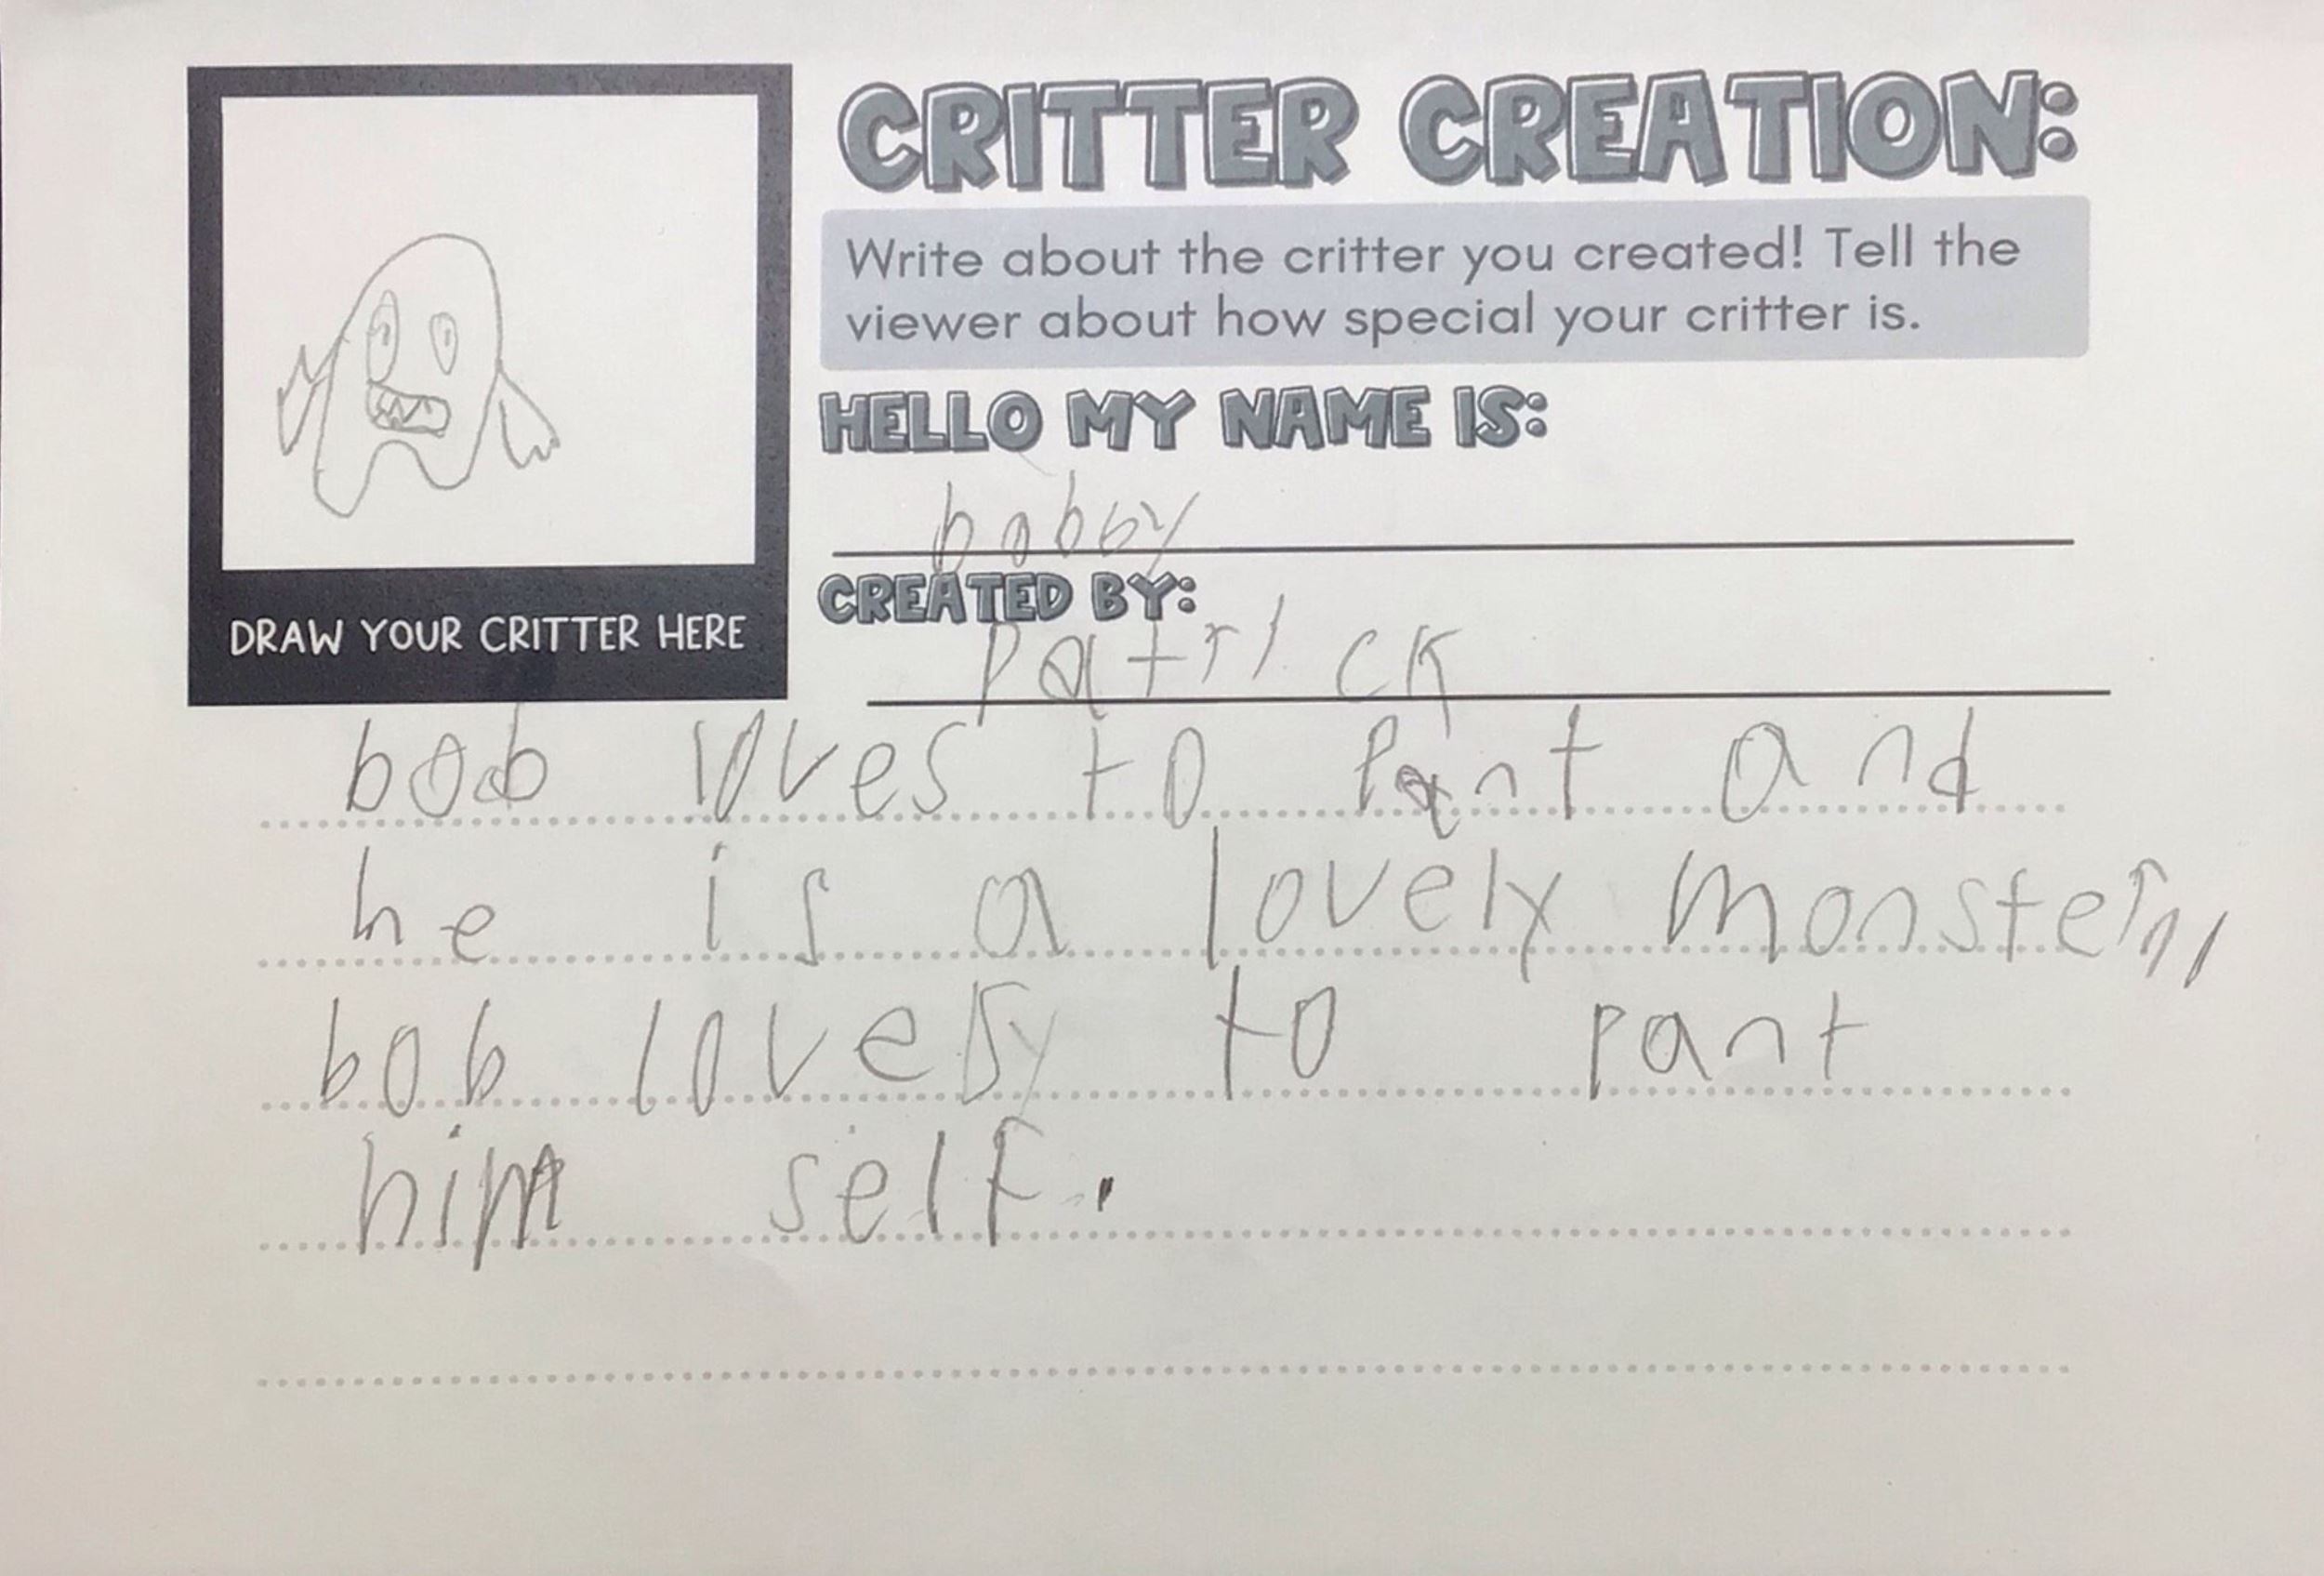 CRITTER CREATION:
Write about the critter you created! Tell the
viewer about how special your critter is.
HELLO MY NAME IS:
bobby
CREATED BY:
Patrick
DRAW YOUR CRITTER HERE
bob loves to pant and
he is a lovely monster,,
bob lovely to pant
him self.